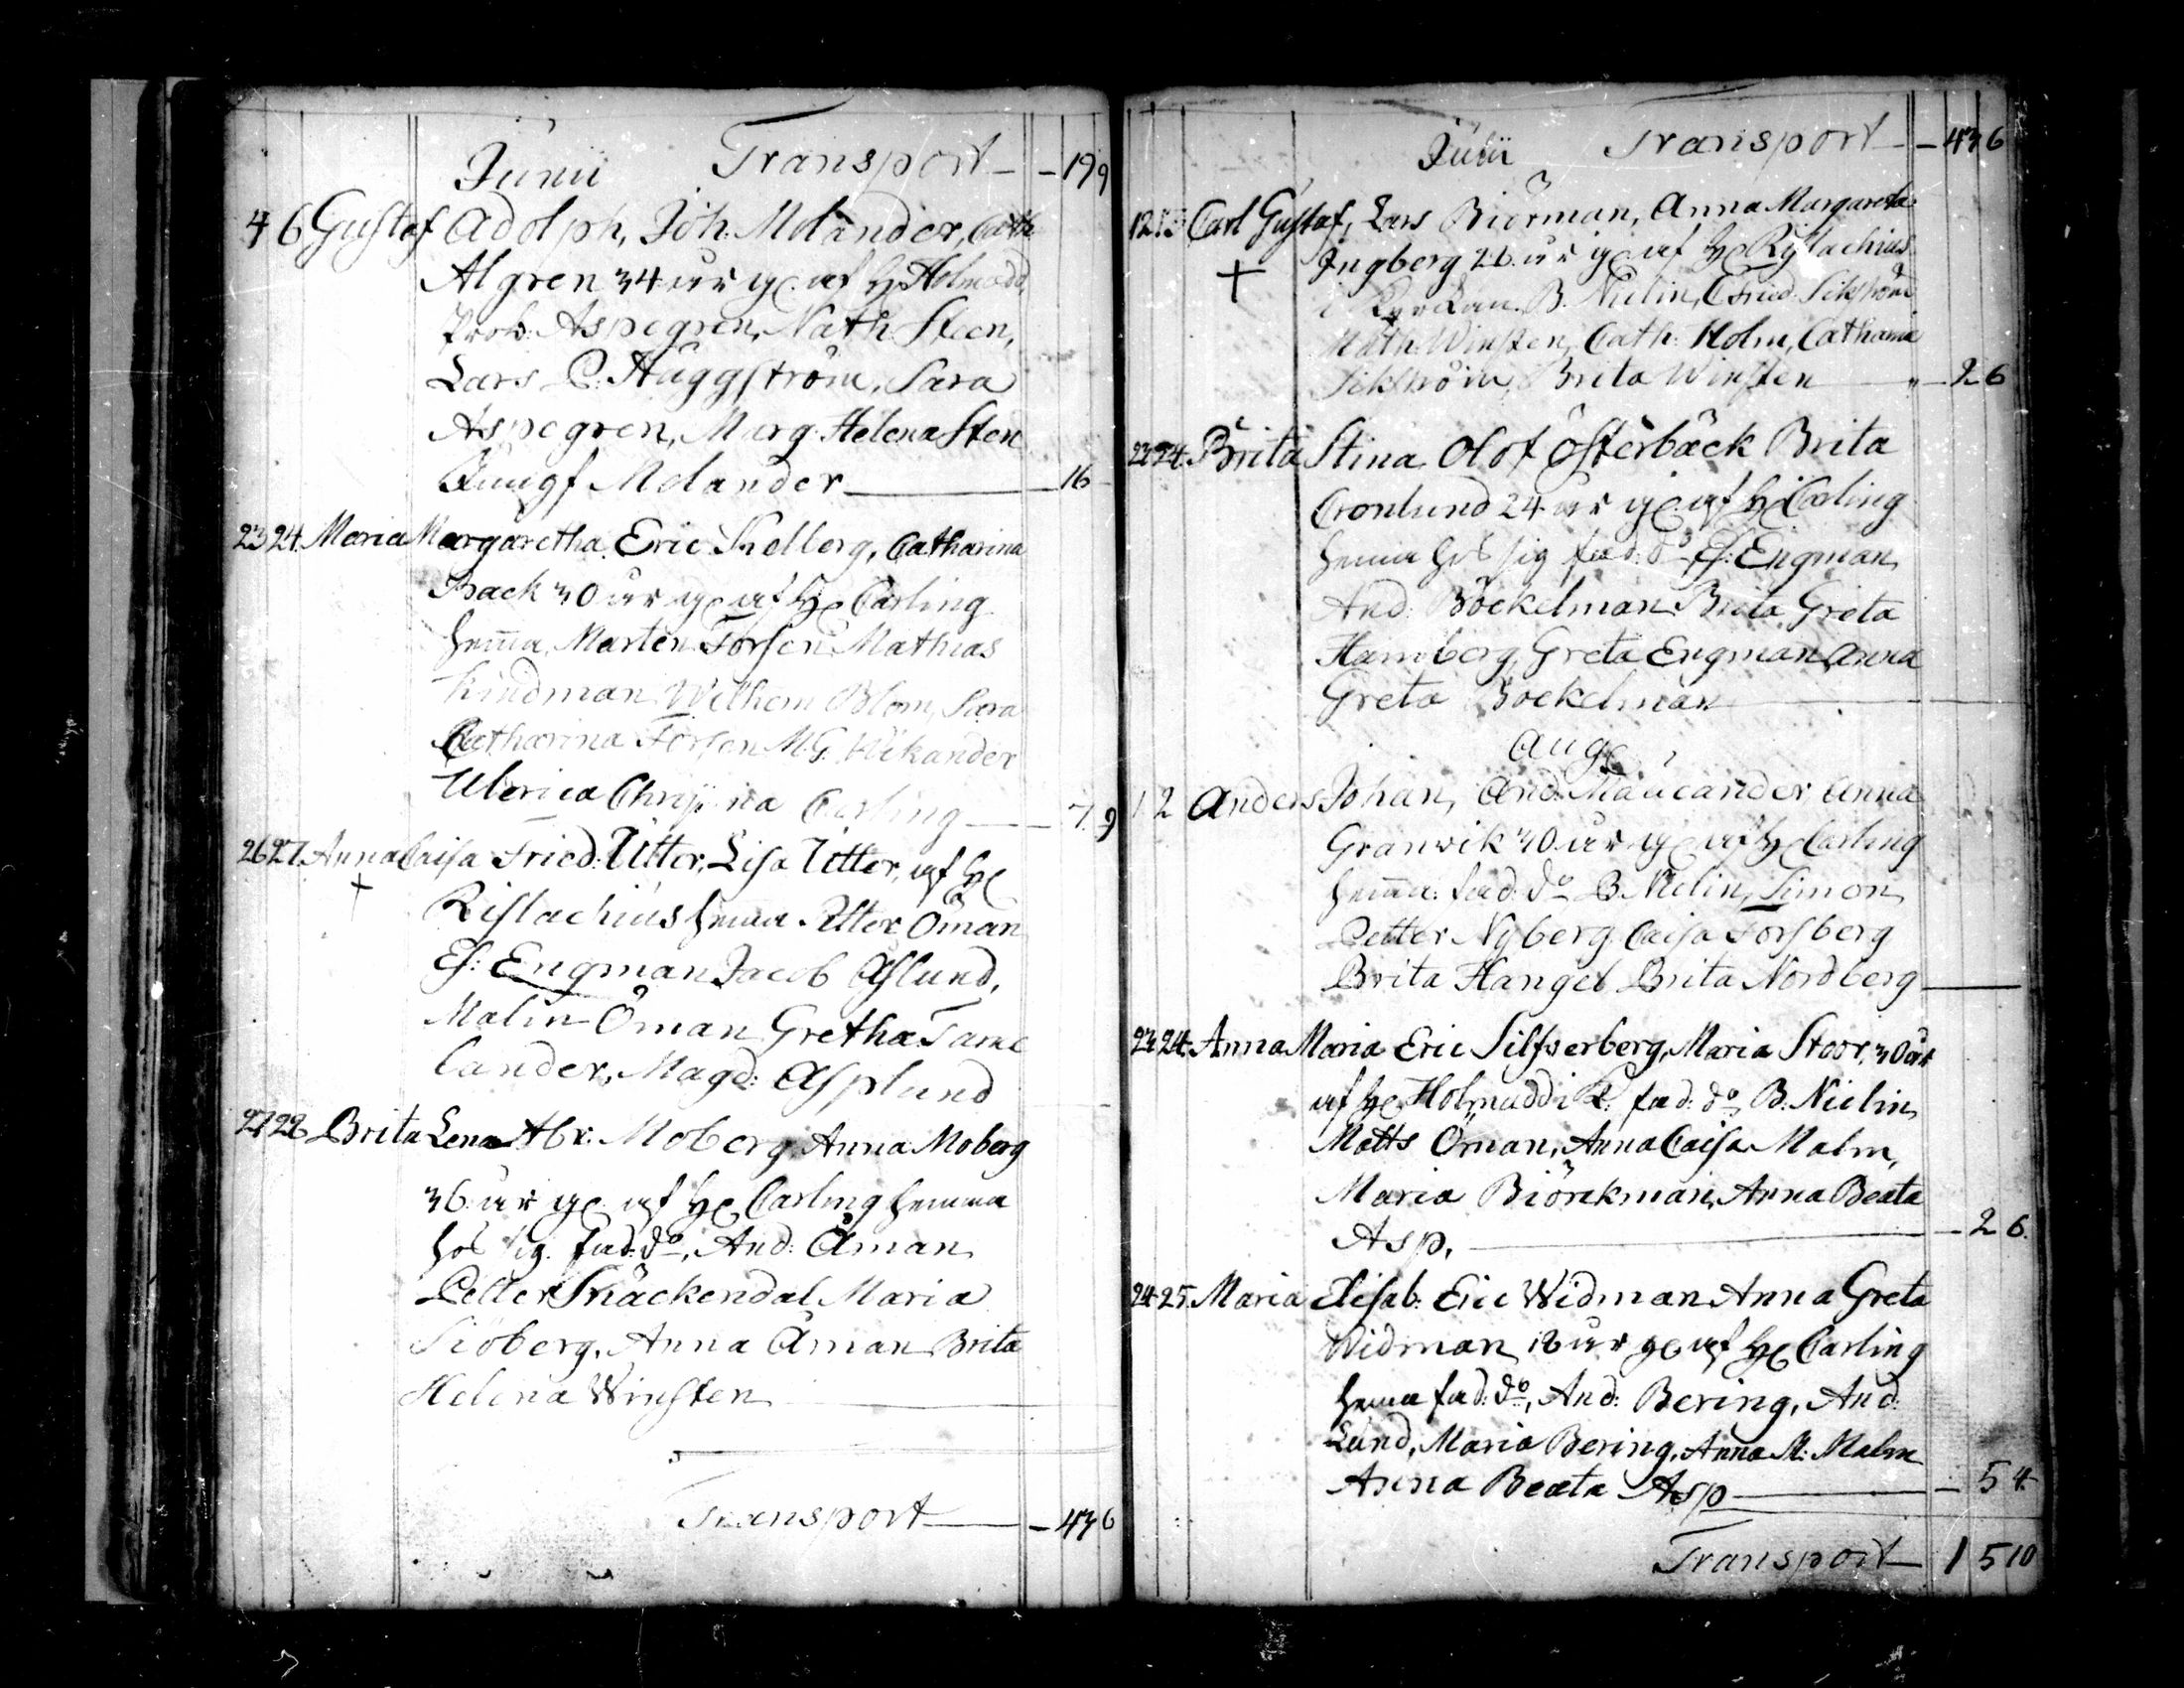 Junii Transport - 19 9
4 6 Gustaf Adolph, Joh. Molander, Cath
Algren 34 år gc af Hc Holmudd,
Prob: Aspegren, Nath Steen,
Lars P. Häggström, Sara
Aspegren, Marg. Helena Sten
Jungf Molander 16
23 24. Maria Margaretha. Eric Kelberg, Catharina
Back 30 år gc af Hc Carling
hema, Marten Forsen Mathias
Lindman Wilhem Blom, Sara
Catharina Forsen M.G. Wikander
Ulerica Christina Carling 7. 9
26 27. Anna Caisa Fried: Utter, Lisa Utter, af Hc
Rislachius hema Petter Öman
Es: Engman Jacob Åslund,
Malin Öman Gretha Tame
lander, Magd: Asplund
27 28 Brita Lena Abr: Moberg Anna Moberg
36 år gc af Hc Carling hemma
hos sig. fad: do, And: Åman
Petter Snäckendal Maria
Siöberg, Anna Åman Brita
Helena Winsten
Transport - 43 6
Julii Transport - 43 6
12 13 Carl Gustaf, Lars Biörman, Anna Margareta
Ingberg 26 år gc af Hc Rislachius
i B. Nielin, C Fried: Sikström
Math. Winsten, Cath: Holm, Catharina
Sikström, Brita Winsten 2 6
23 24. Brita Stina Olof Österbäck Brita
Cronlund 24 år gc af Hc Carling
hema hos sig fad: do Es: Engman
And: Böckelman Brita Greta
Hamberg, Greta Engman Anna
Greta Böckelman
Aug
1 2 Anders Johan, And: Maucander, Anna
Granwik 30 år gc af Hc Carling
hema: fad: do B Nielin, Simon
Petter Nyberg Caisa Forsberg
Brita Hangel Brita Nordberg
23 24. Anna Maria Eric Silfverberg, Maria Stoor, 30 år
af Hc Holmudd i K: fad: do B. Nielin
Matts Öman, Anna Caisa Malm,
Maria Biörckman, Anna Beata
Asp. 2 6
24 25. Maria Elisab: Eric Widman Anna Greta
Widman 18 år gc af Hc Carling
hema fad: do, And: Bering, And:
Lund, Maria Bering, Anna M: Malm
Anna Beata Asp 5 4
Transport 1 5 10